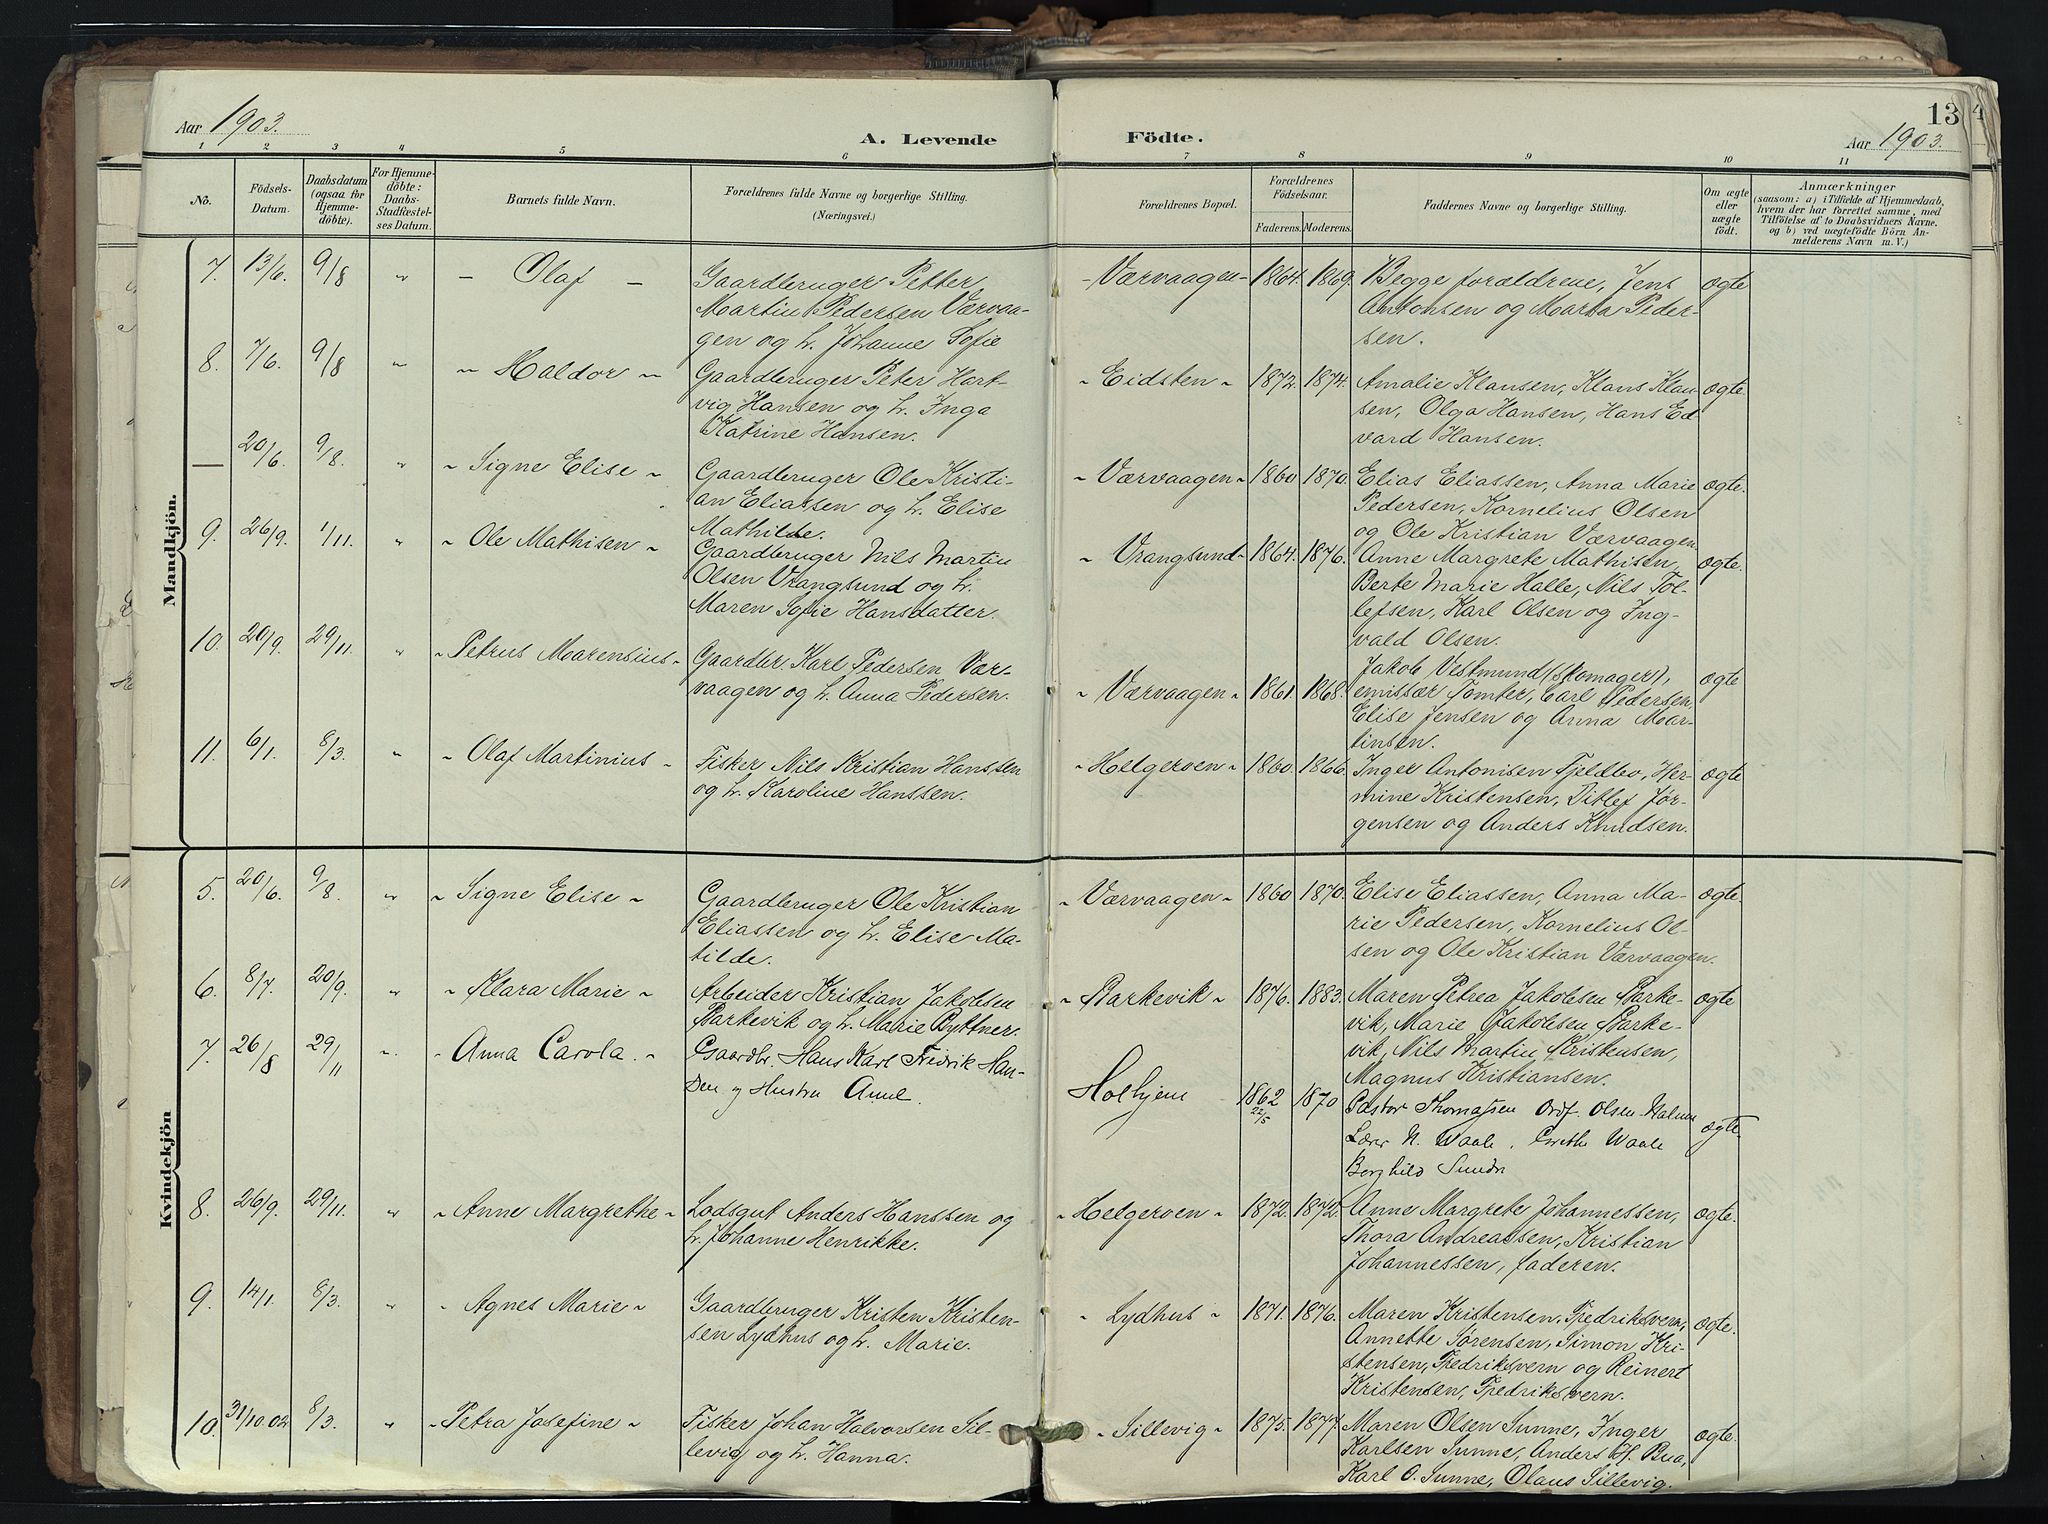 Aar 1903.
A. Levende
Födte.
13
4
Aar 1903.
1 2 3 4 5 6 7 8 9 10 11
No.
Födsels-
Datum.
Daabsdatum
(ogsaa for
Hjemme-
döbte).
For Hjemme-
döbte:
Daabs-
Stadfæstel-
ses Datum.
Barnets fulde Navn.
Forældrenes fulde Navne og borgerlige Stilling.
(Næringsvei.)
Forældrenes Bopæl.
Forældrenes
Födselsaar.
Faderens. Moderens.
Faddernes Navne og borgerlige Stilling.
Om ægte
eller
uægte
födt.
Anmærkninger
(saasom: a) i Tilfælde af Hjemmedaab,
hvem der har forrettet samme, med
Tilföielse af to Daabsvidners Navne.
og b) ved uægtefödte Börn An-
melderens Navn m. V.)
Mandkjön.
7. 13/6. 9/8 " - Olaf -
Gaardbruger Petter
Martin Pedersen Værvaa-
gen og h. Johanne Sofie
- Værvaagen - 1864. 1869.
Begge forældrene, Jens
Antonsen og Marta Peder-
sen.
ægte
8. 7/6. 9/8 " " Haldor "
Gaardbruger Peter Hart-
vig Hansen og h. Inga
Katrine Hansen.
" Eidsten " 1872. 1874.
Amalie Klausen, Klaus Klau-
sen, Olga Hansen, Hans Ed
vard Hansen.
ægte
— 20/6. 9/8. " " Signe Elise "
Gaardbruger Ole Kristi-
an Eliassen og h. Elise
Mathilde.
" Værvaagen " 1860 1870.
Elias Eliassen, Anna Marie
Pedersen, Kornelius Olsen
og Ole Kristian Værvaagen
ægte.
9. 26/9. 1/11. " " Ole Mathisen "
Gaardbruger Nils Martin
Olsen Vrangsund og h.
Maren Sofie Hansdatter.
" Vrangsund " 1864. 1876.
Anne Margrete Mathisen,
Berte Marie Halle, Nils Tol-
lefsen, Karl Olsen og Ing-
vald Olsen.
ægte.
10. 20/9. 29/11. " " Petrus Marensius "
Gaardbr. Karl Pedersen Vær-
vaagen og h. Anna Pedersen.
" Værvaagen " 1861. 1868.
Jakob Vestmund (skomager),
emissær Tomter, Carl Pedersen,
Elise Jensen og Anna Mar-
tinsen.
ægte
11. 6/1. 8/3. " " Olaf Martinius "
Fisker Nils Kristian Hanssen
og h. Karoline Hanssen.
" Helgeroen " 1860. 1866.
Inger Antonisen Fjeldbo, Her-
mine Kristensen, Ditlef Jør-
gensen og Anders Knudsen.
ægte
Kvindekjön
5. 20/6. 9/8. " " Signe Elise "
Gaardbruger Ole Kristian
Eliassen og h. Elise Ma-
tilde.
" Værvaagen " 1860 1870.
Elise Eliassen, Anna Ma-
rie Pedersen, Kornelius Ol-
sen og Ole Kristian Værvaagen.
ægte.
6. 8/7. 20/9. " " Klara Marie "
Arbeider Kristian Jakobsen
Barkevik og h. Marie Byttner.
" Barkevik " 1876. 1883.
Maren Petrea Jakobsen Barke-
vik, Marie Jakobsen Barke-
vik, Nils Martin Kristensen,
Magnus Kristiansen.
ægte
7. 26/8 29/11 " " Anna Carola. "
Gaardbr. Hans Karl Fredrik Han-
sen og Hustru Anne.
Holhjem 1862 22/5 1870
Pastor Thomassen Ordf. Olsen-Nalum
Lærer N. Waale. Grethe Waale
Borghild Sundn
ægte.
8. 26/9. 29/11. " " Anne Margrethe "
Lodsgut Anders Hanssen og
h. Johanne Henrikke.
" Helgeroen " 1872. 1872.
Anne Margrete Johannessen,
Thora Andreassen, Kristian
Johannessen, faderen.
ægte.
9. 14/1. 8/3. " " Agnes Marie "
Gaardbruger Kristen Kristen-
sen Lydhus og h. Marie.
" Lydhus " 1871. 1876.
Maren Kristensen, Fredriksvern,
Annette Sørensen, Simon Kri-
stensen, Fredriksvern og Reinert
Kristensen, Fredriksvern.
ægte.
10. 31/10.02 8/3. " " Petra Josefine "
Fisker Johan Halvorsen Sil-
levig og h. Hanna.
" Sillevig " 1875. 1877.
Maren Olsen Sunne, Inger
Karlsen Sunne, Anders H. Bua,
Karl O. Sunne, Olaus Sillevig.
ægte.